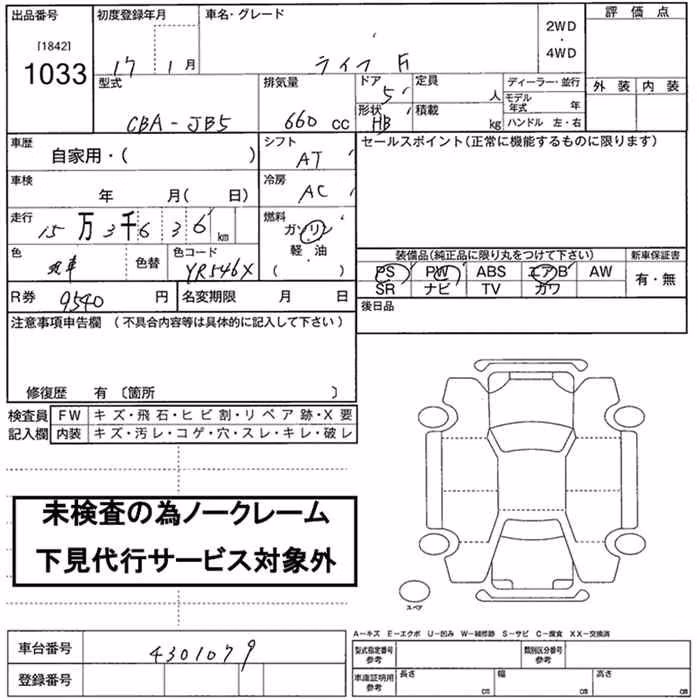 出品番号 初度登録年月 車名・グレード 2WD ・ 4WD 評価点
[1842]
1033 17 1月 ライフ F
外装 内装
型式 排気量 ドア 定員 ディーラー・並行
CBA-JB5 660 cc 5 人 モデル年式 年
形状 積載 ハンドル 左・右
HB kg
車歴 シフト セールスポイント(正常に機能するものに限ります)
自家用・( ) AT
車検 冷房
年 月( 日) AC
走行 燃料
15万3千636km ガソリン
軽油
( )
色 色替 色コード 装備品(純正品に限り丸をつけて下さい) 新車保証書
YR546X PS PW ABS エアB AW 有・無
SR ナビ TV カワ
R券 9540 円 名変期限 月 日 後日品
注意事項申告欄 (不具合内容等は具体的に記入して下さい)
修復歴 有 〔箇所 〕
検査員 FW キズ・飛石・ヒビ割・リペア跡・X要
記入欄 内装 キズ・汚レ・コゲ・穴・スレ・キレ・破レ
未検査の為ノークレーム
下見代行サービス対象外
スペア
A-キズ E-エクボ U-凹み W-補修跡 S-サビ C-腐食 XX-交換済
車台番号 4301079 型式指定番号 参考 類別区分番号 参考
登録番号 車庫証明用 参考 長さ cm 幅 cm 高さ cm